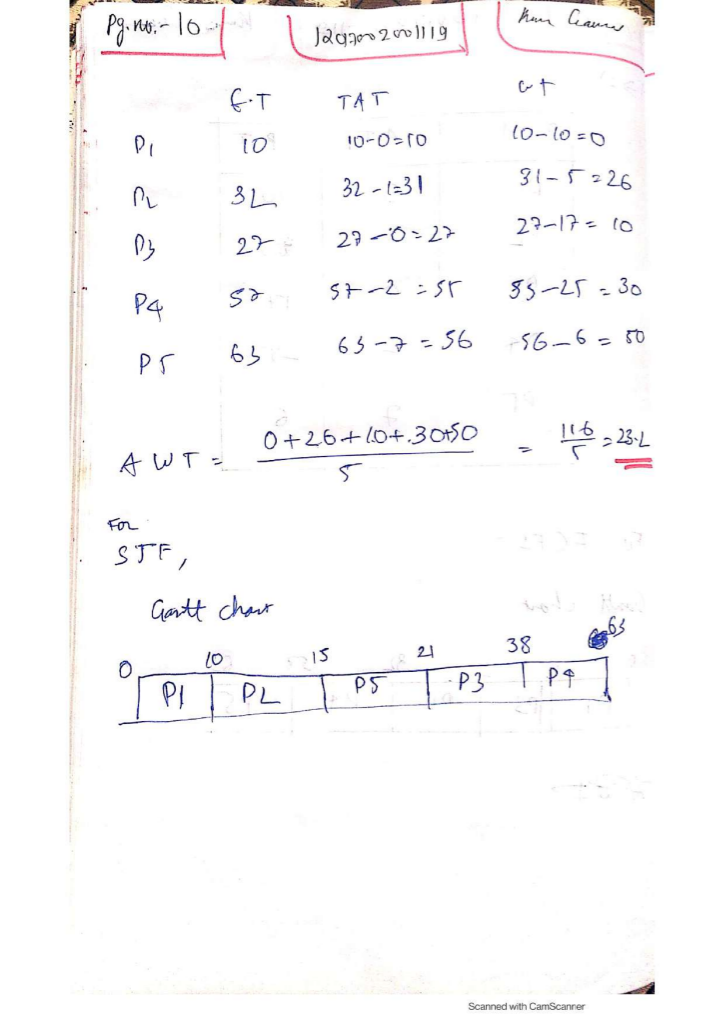 Pg. no:- 10
F.T TAT
P1 10 10-0=10 10-10=0
P2 32 32-1=31 31-5=26
P3 27 27-0=27 27-17=10
P4 57 57-2=55 55-25=30
P5 63 63-7=56 56-6=50
AWT = 0+26+10+30+50 / 5 = 116/5 = 23.2
For
SJF,
Gantt chart
0 10 15 21 38 63
P1 P2 P5 P3 P4
Scanned with CamScanner